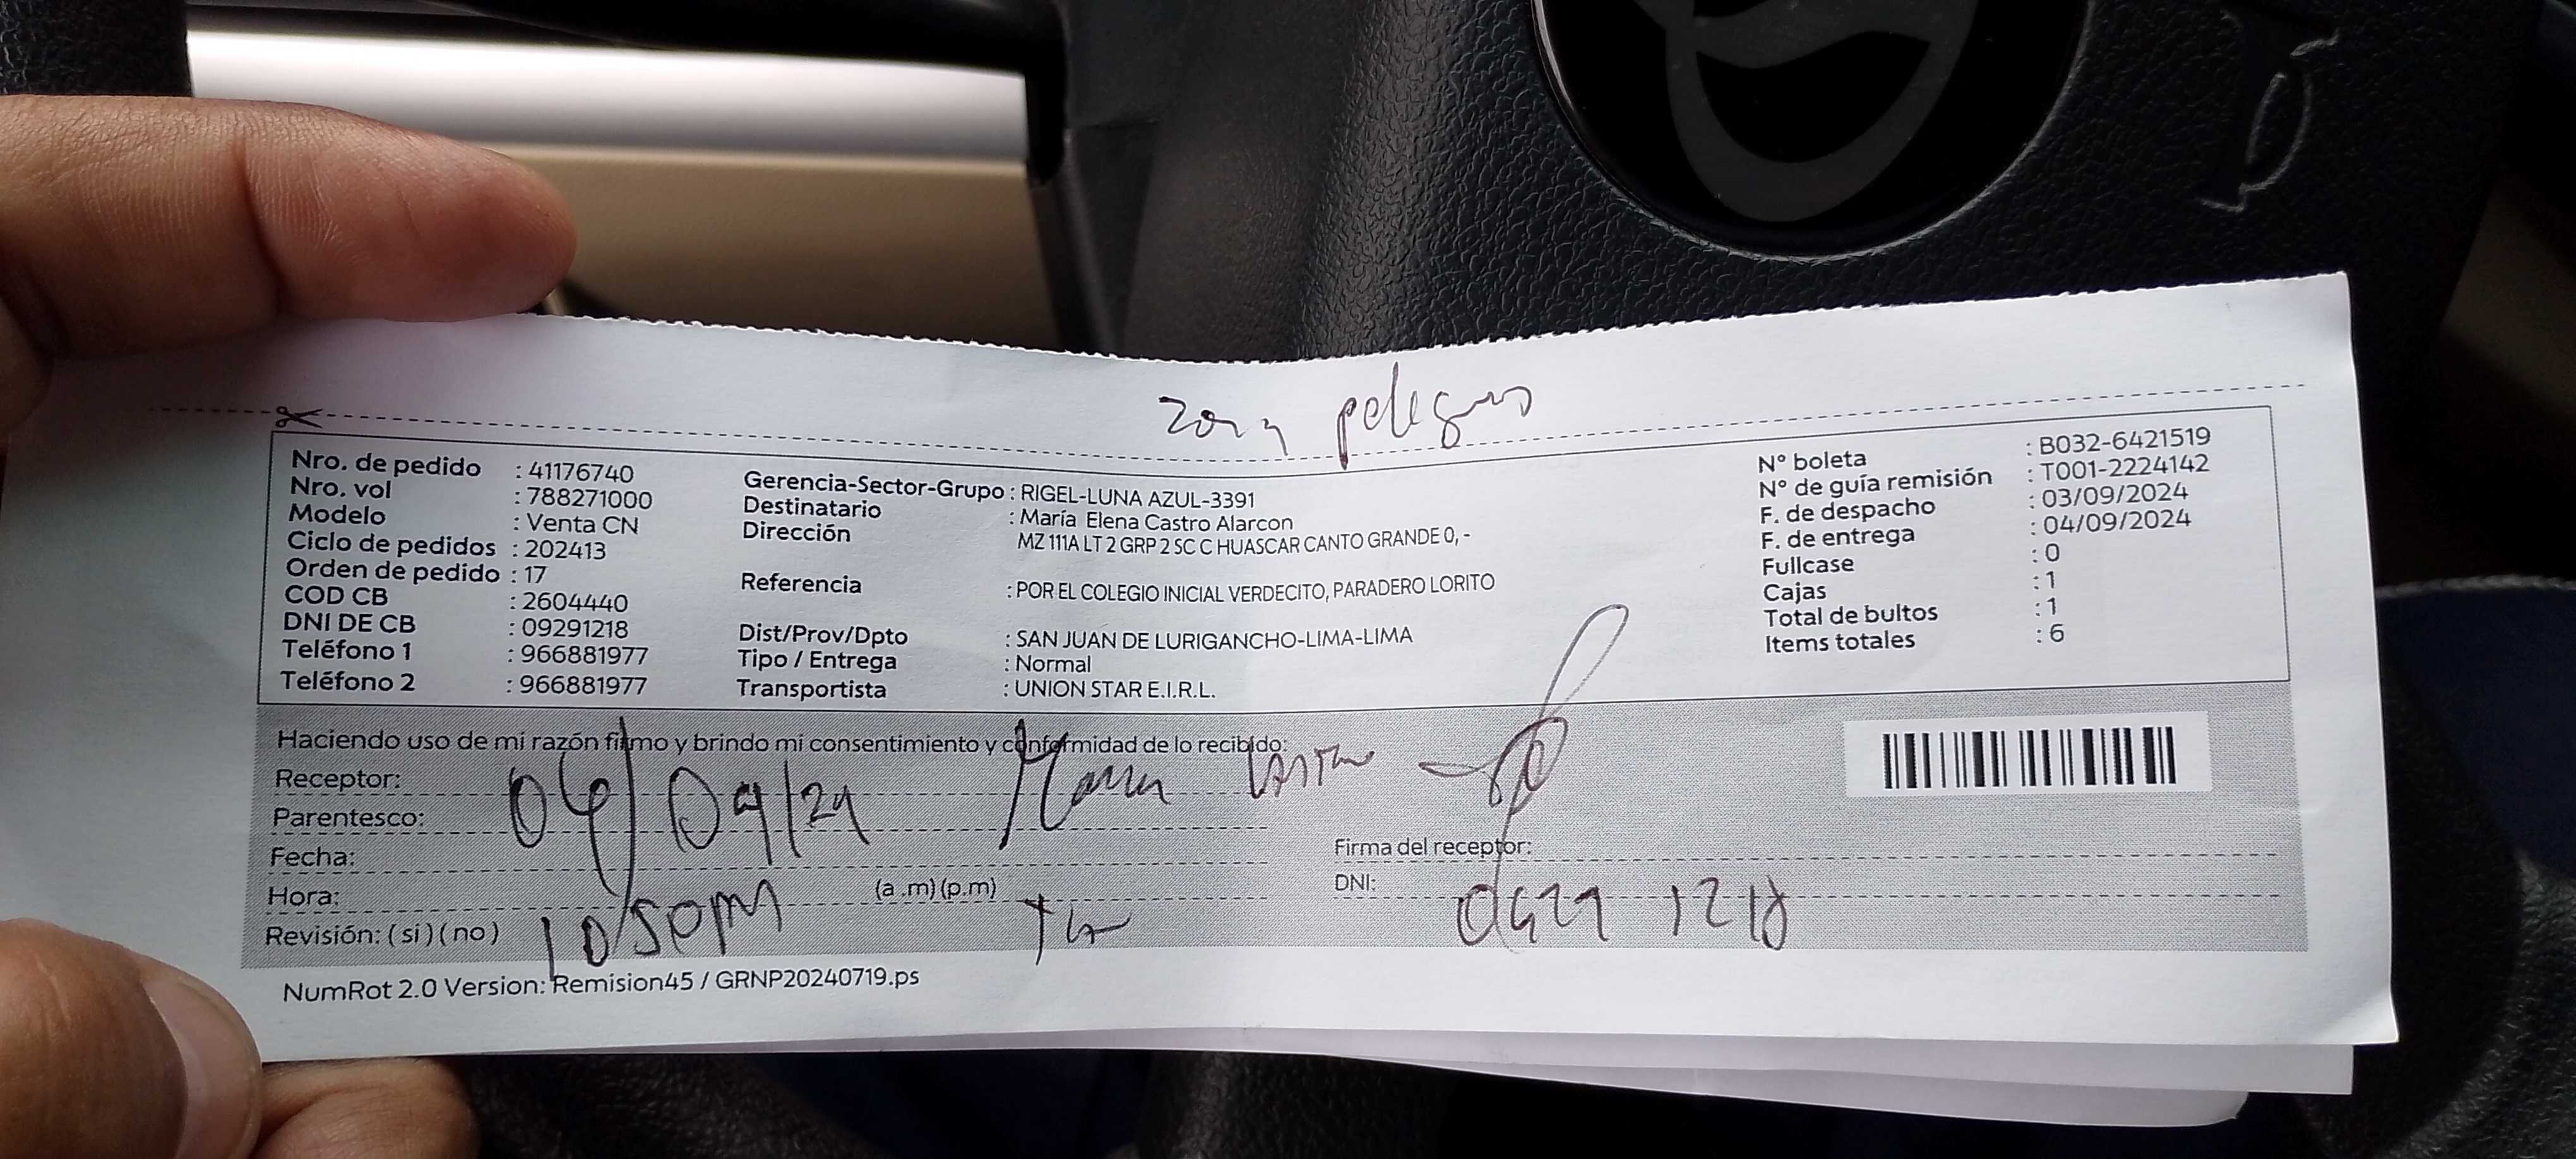 zona peligros
Nro. de pedido : 41176740
Nro. vol : 788271000
Modelo : Venta CN
Ciclo de pedidos : 202413
Orden de pedido : 17
COD CB : 2604440
DNI DE CB : 09291218
Teléfono 1 : 966881977
Teléfono 2 : 966881977
Gerencia-Sector-Grupo : RIGEL-LUNA AZUL-3391
Destinatario : María Elena Castro Alarcon
Dirección MZ 111A LT 2 GRP 2 SC C HUASCAR CANTO GRANDE 0, -
Referencia : POR EL COLEGIO INICIAL VERDECITO, PARADERO LORITO
Dist/Prov/Dpto : SAN JUAN DE LURIGANCHO-LIMA-LIMA
Tipo / Entrega : Normal
Transportista : UNION STAR E.I.R.L.
N° boleta : B032-6421519
N° de guía remisión : T001-2224142
F. de despacho : 03/09/2024
F. de entrega : 04/09/2024
Fullcase : 0
Cajas : 1
Total de bultos : 1
Items totales : 6
Haciendo uso de mi razón firmo y brindo mi consentimiento y conformidad de lo recibido:
Receptor:
Parentesco: 04/09/24 Maria Castro
Fecha:
Hora: (a .m) (p.m)
Revisión: ( si ) ( no ) 10:50 pm
Firma del receptor:
DNI: 0929 1218
NumRot 2.0 Version: Remision45 / GRNP20240719.ps